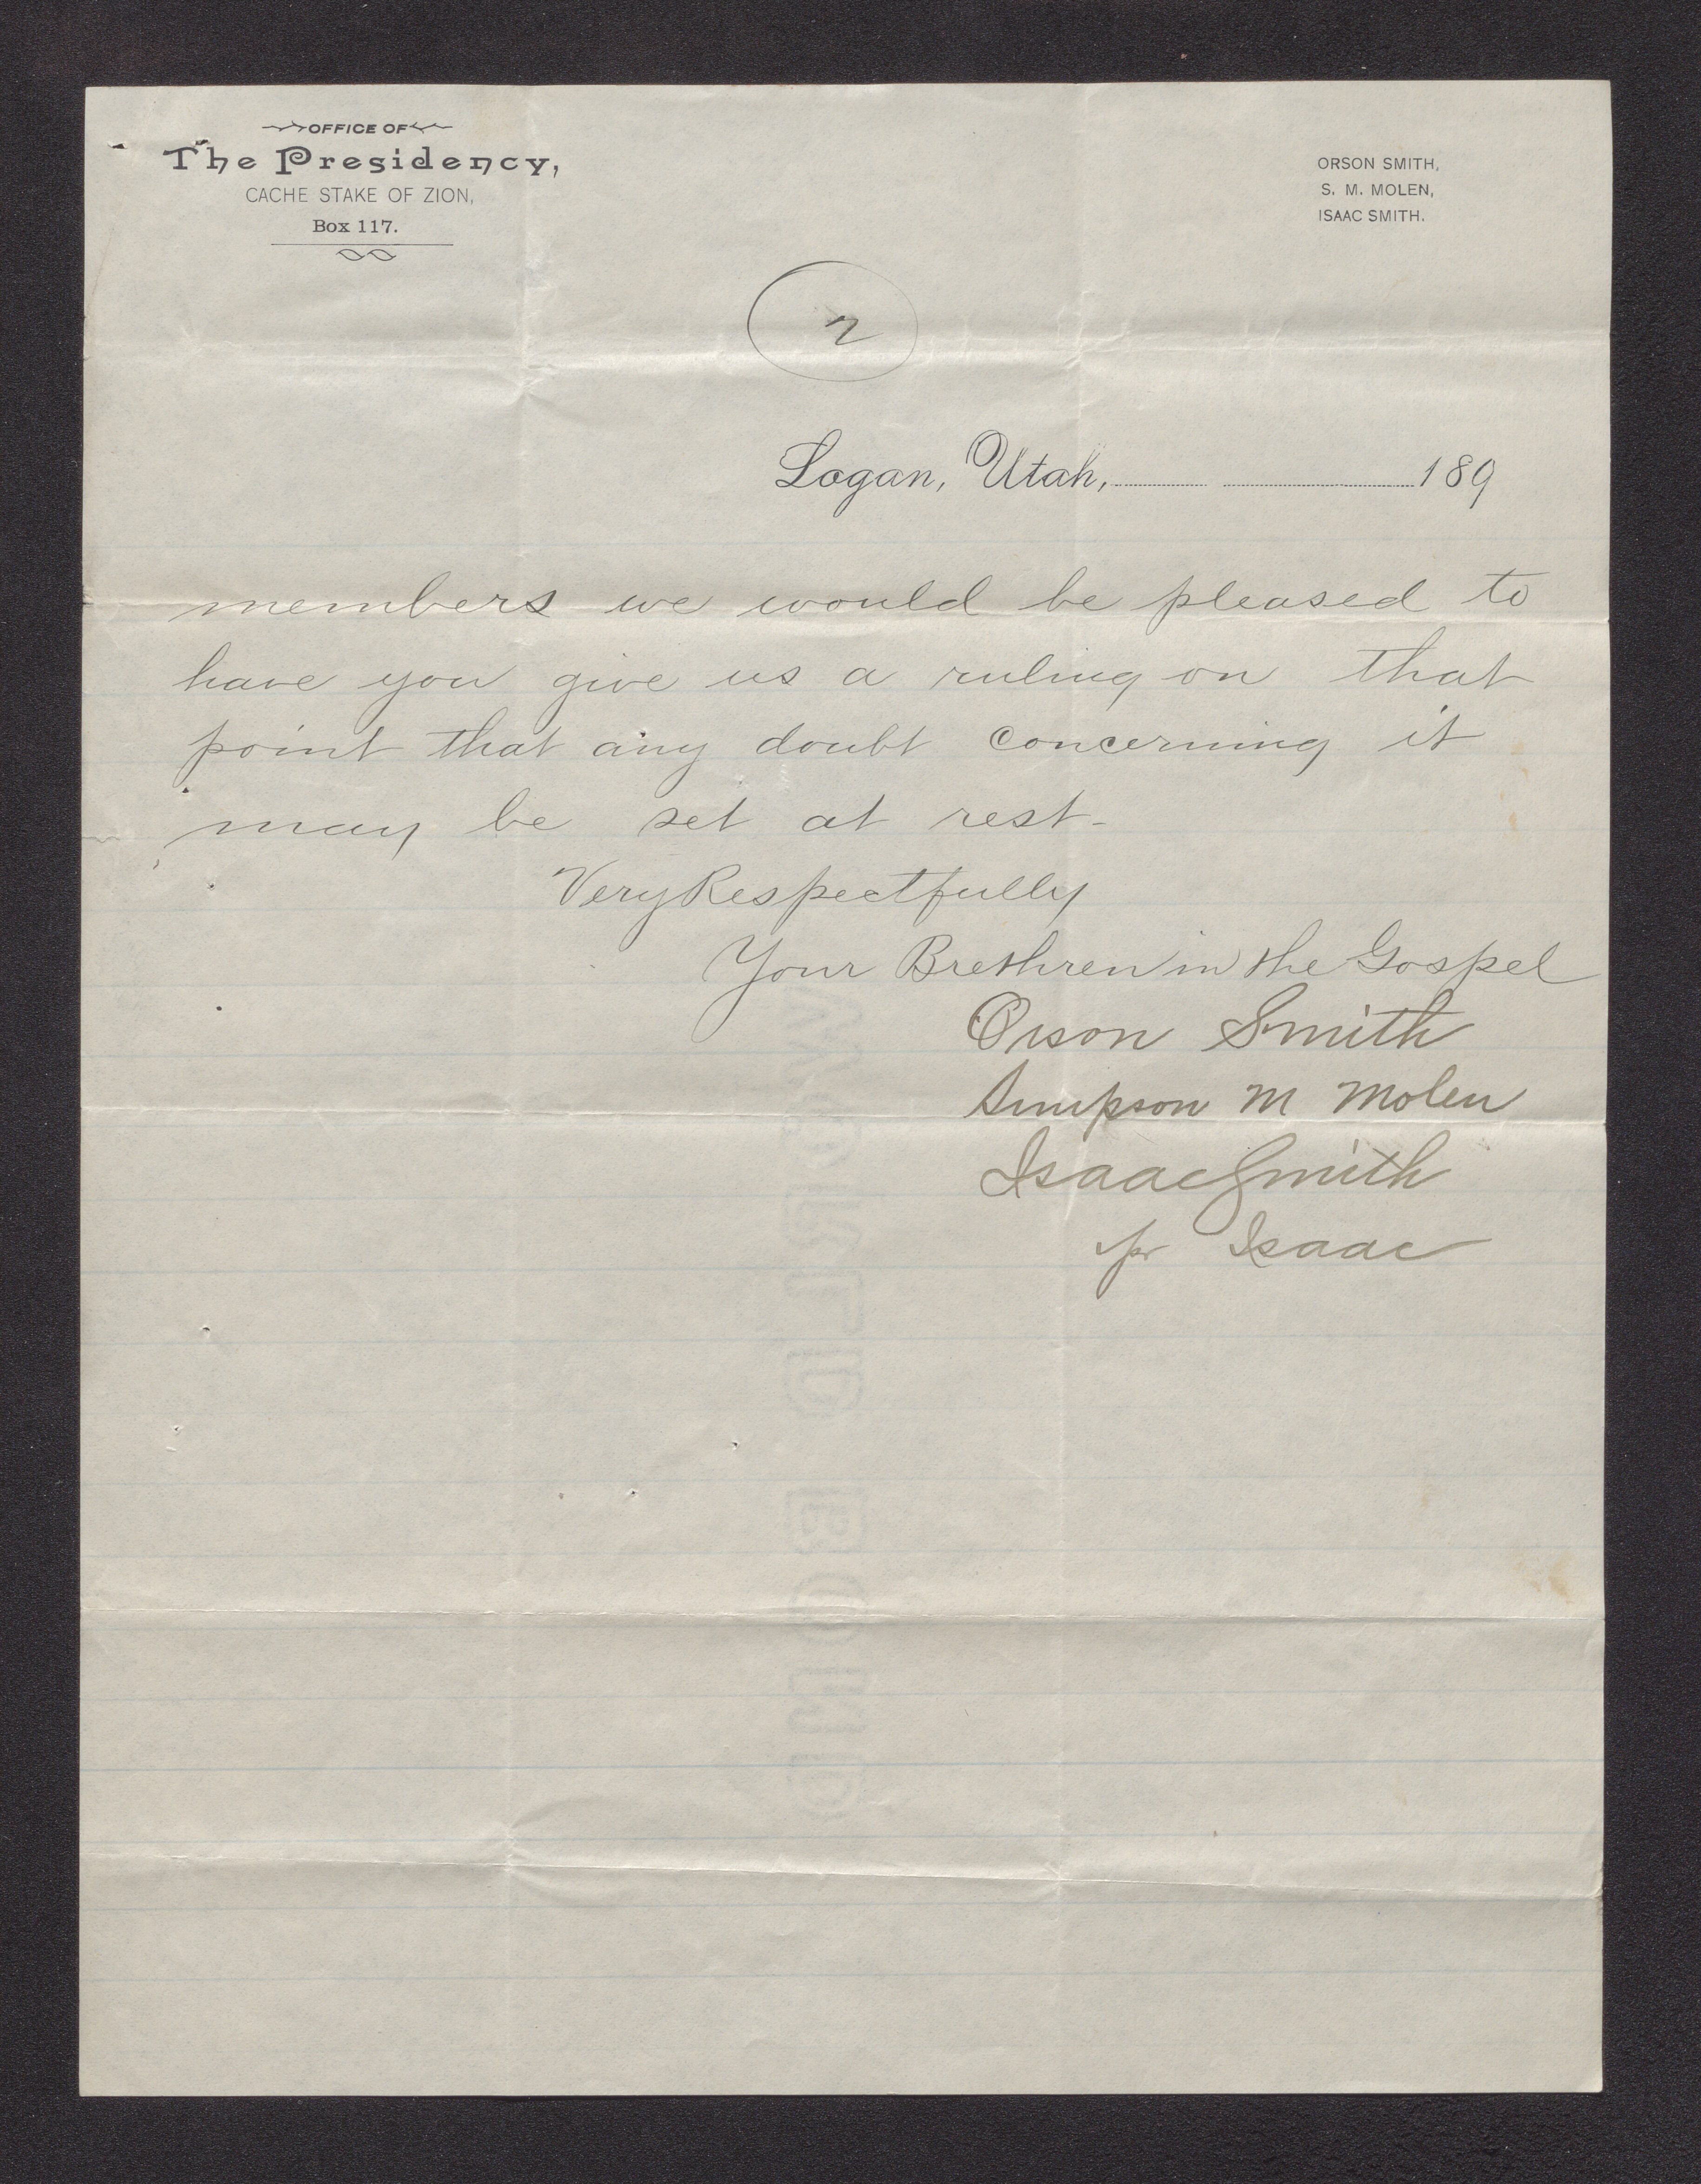 OFFICE OF
The Presidency,
CACHE STAKE OF ZION,
Box 117.
ORSON SMITH,
S. M. MOLEN,
ISAAC SMITH.
2
Logan, Utah, 189
members we would be pleased to
have you give us a ruling on that
point that any doubt concerning it
may be set at rest-
Very Respectfully
Your Brethren in the Gospel
Orson Smith
Simpson M Molen
Isaac Smith
pr Isaac